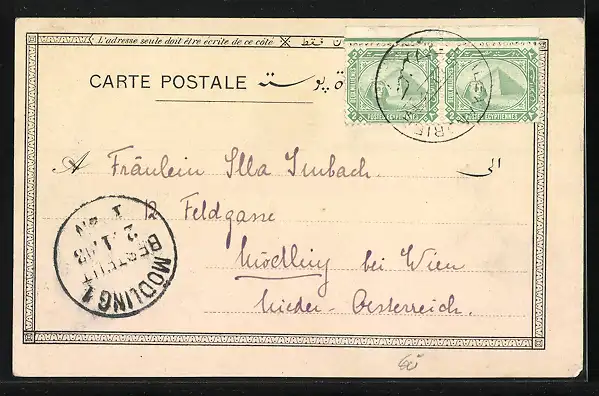 L'adresse seule doit être écrite de ce côté
CARTE POSTALE
POSTES EGYPTIENNES
POSTES EGYPTIENNES
A Fräulein Illa Imbach.
الى
12 Feldgasse
Mödling bei Wien
Nieder-Oesterreich.
MÖDLING 1
BESTELLT